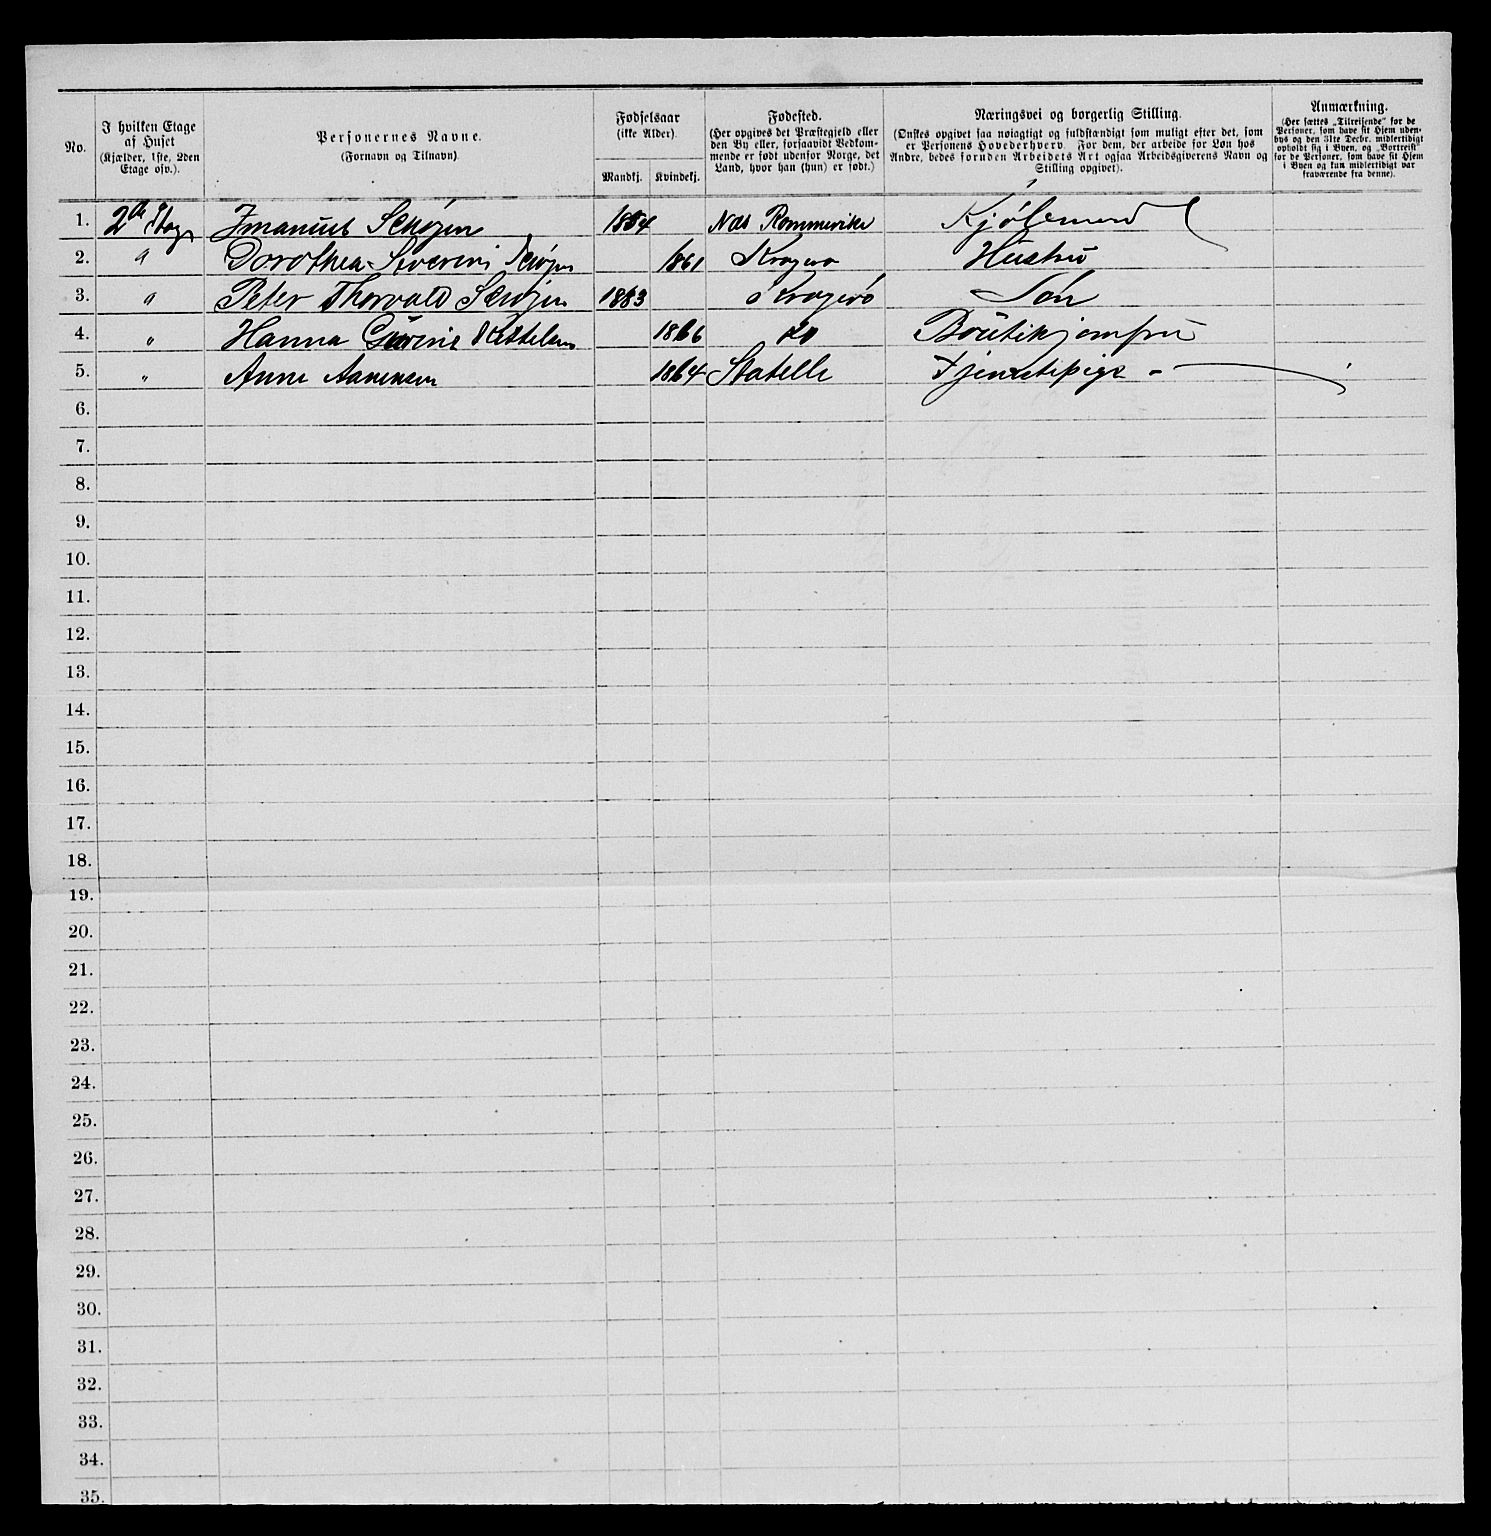 No.
I hvilken Etage af Huset
(Kjælder, 1ste, 2den Etage osv.).
Personernes Navne.
(Fornavn og Tilnavn)
Fødselsaar
(ikke Alder)
Mandkj. Kvindekj.
Fødested.
(Her opgives det Præstegjeld eller
den By eller, forsaavidt Vedkom-
mende er født udenfor Norge, det
Land, hvor han (hun) er født.)
Næringsvei og borgerlig Stilling.
(Ønskes opgivet saa nøiagtigt og fuldstændigt som muligt efter det, som
er Personens Hovederhverv. For dem, der arbeide for Løn hos
Andre, bedes foruden Arbeidets Art ogsaa Arbeidsgiverens Navn og
Stilling opgivet).
Anmærkning.
(Her sættes „Tilreisende“ for de
Personer, som have sit Hjem uden-
bys og den 31te Decbr. midlertidigt
opholdt sig i Byen, og „Bortreist“
for de Personer, som have sit Hjem
i Byen og kun midlertidigt var
fraværende fra denne).
1. 2den Etage Imanuel Schøjen 1854 Næs Rommerike Kjøbmand
2. " Dorothea Severine Schøjen 1861 Kragerø Hustru
3. " Peter Thorvald Schøjen 1883 Kragerø Søn
4. " Hanna 1866 do Boutikjomfru
5. " Anne Aanensen 1864 Statelle Tjenestepige -
6.
7.
8.
9.
10.
11.
12.
13.
14.
15.
16.
17.
18.
19.
20.
21.
22.
23.
24.
25.
26.
27.
28.
29.
30.
31.
32.
33.
34.
35.